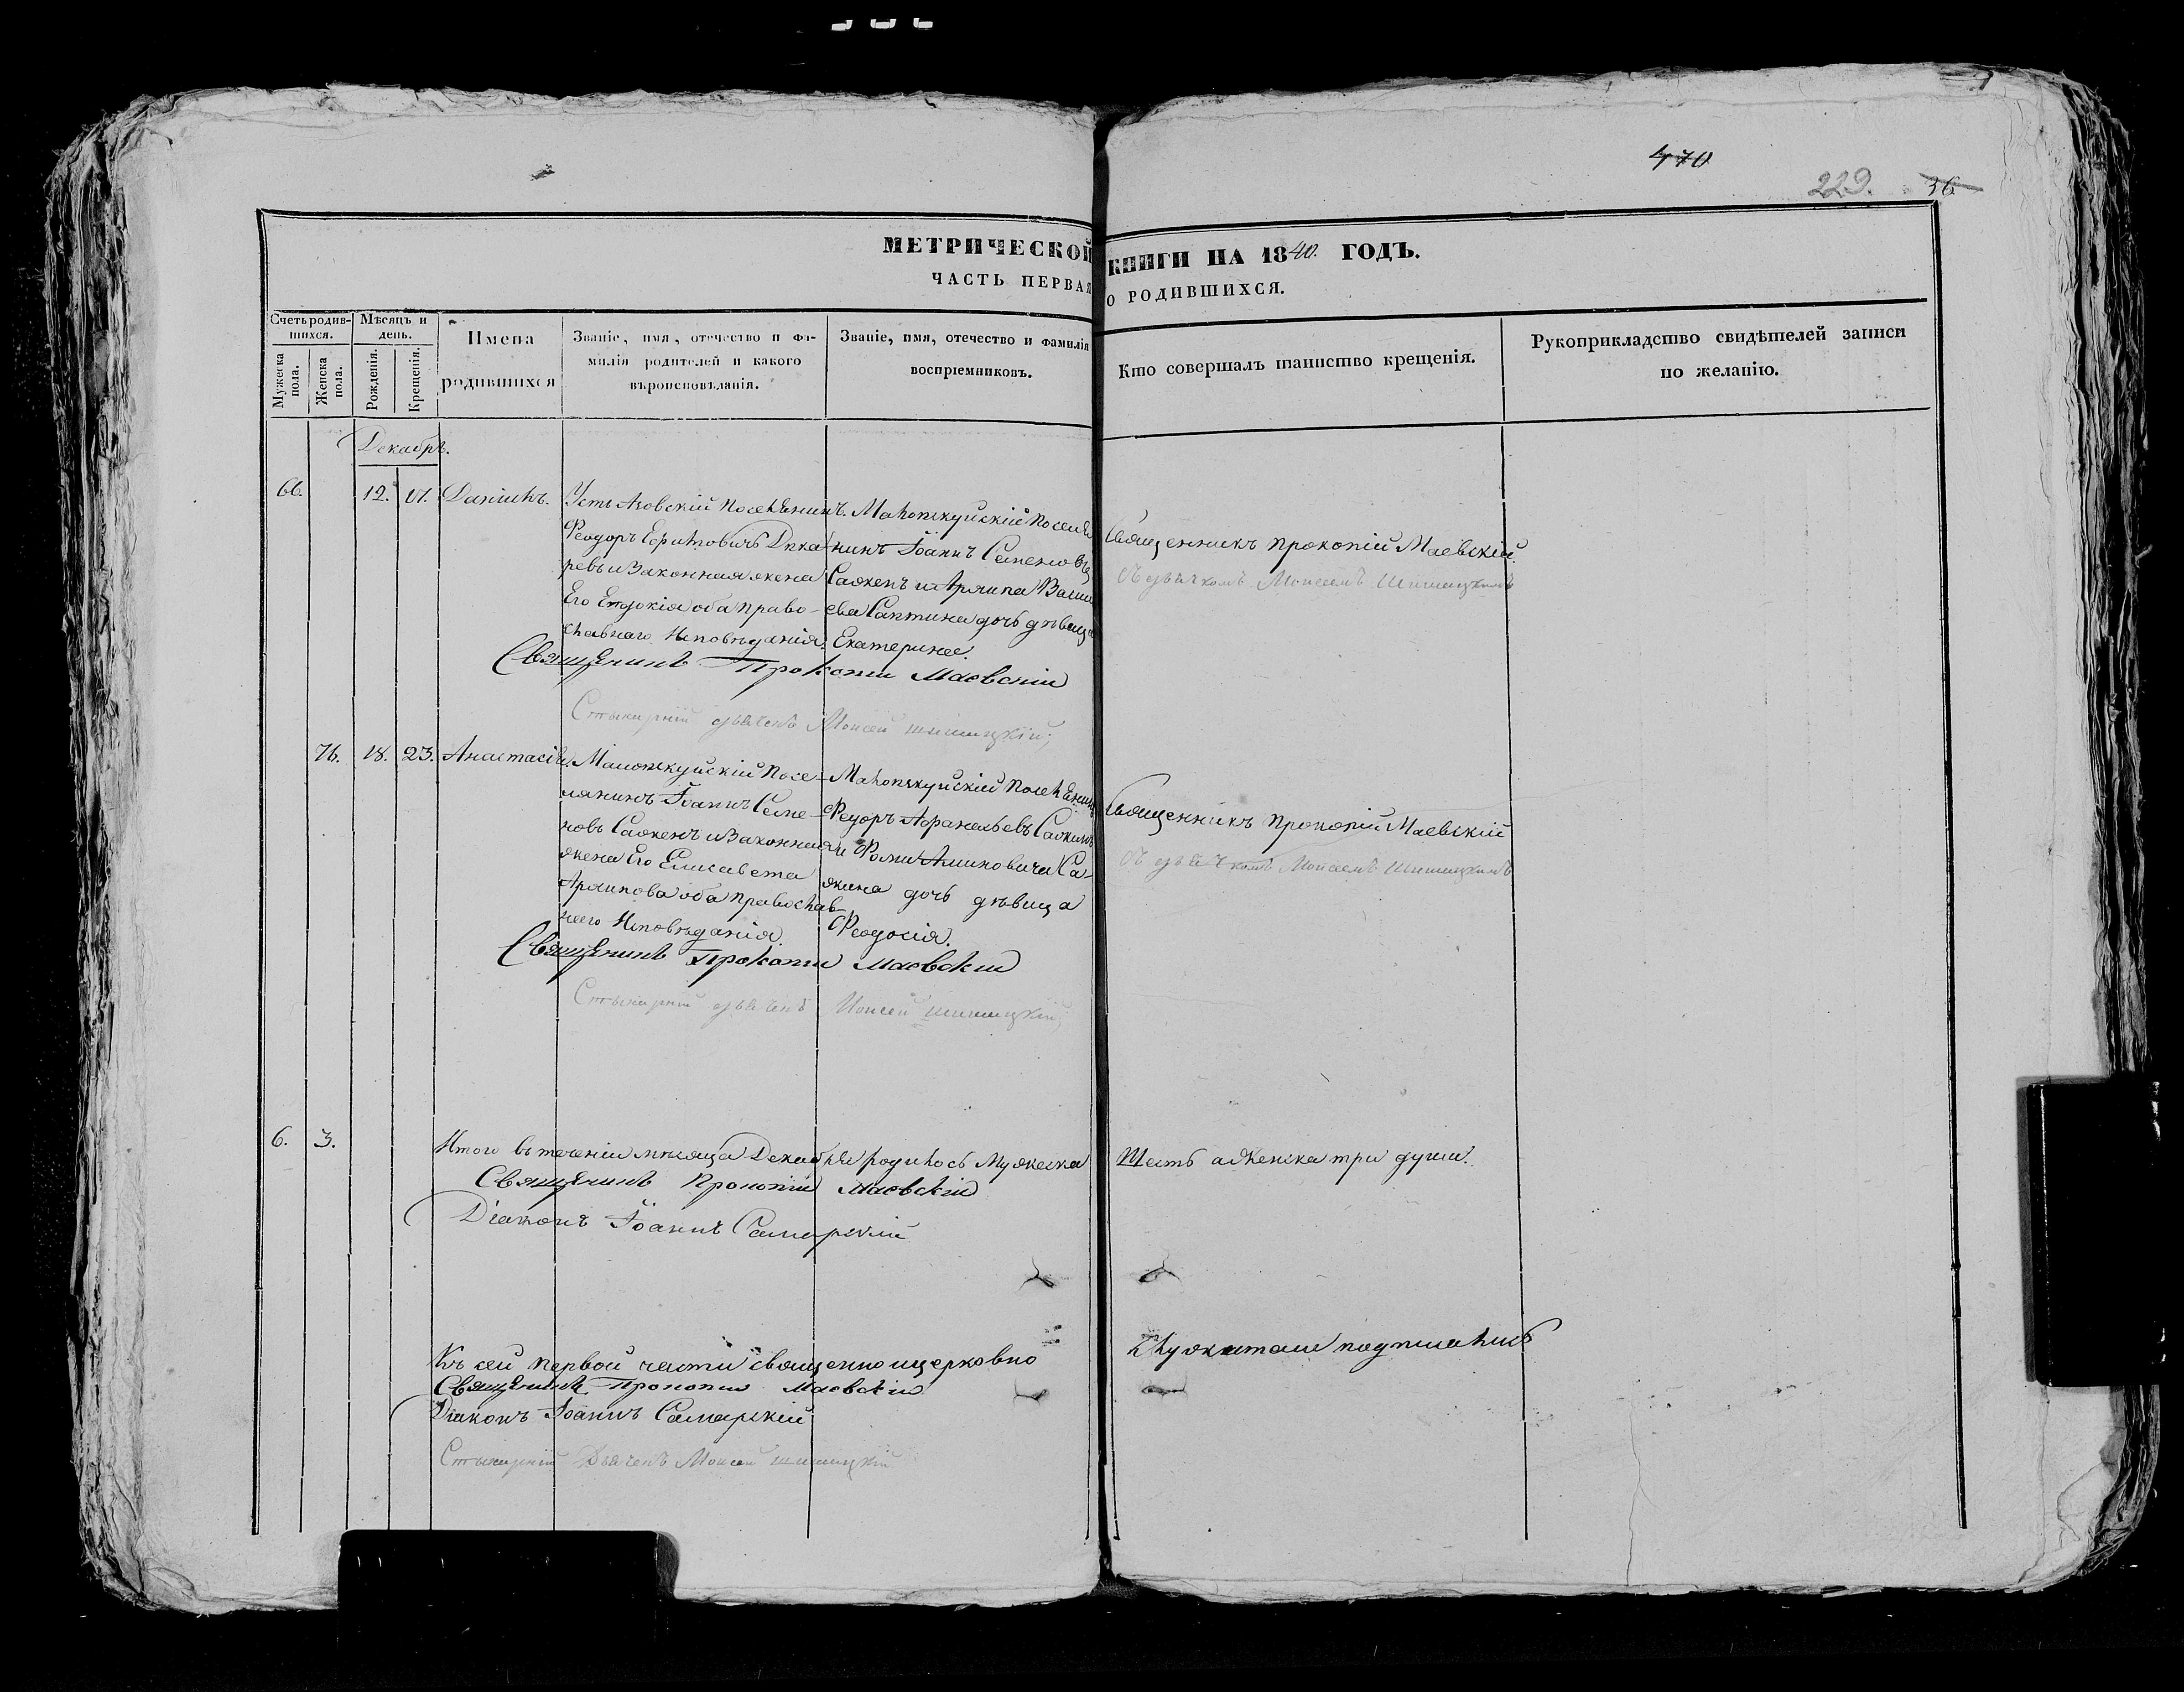 470
229. 36
МЕТРИЧЕСКОЙ КНИГИ НА 1840. ГОДЪ.
ЧАСТЬ ПЕРВАЯ О РОДИВШИХСЯ.
Счетъ родив-
шихся.
Мужеска пола.
Женска пола.
Мѣсяцъ и
день.
Рожденія.
Крещенія.
Имена
родившихся
Званіе, имя, отечество и фа-
милія родителей и какого
вѣроисповѣданія.
Званіе, имя, отечество и фамилія
воспріемниковъ.
Кто совершалъ таинство крещенія.
Рукоприкладство свидѣтелей записи
по желанію.
Декабрь.
66. 12. 17. Даніилъ.
Усть Азовскій поселянинъ
Феодоръ Ефимовичъ
и законная жена
Его Евдокія оба право-
славнаго Исповѣданія.
Іоаннъ Семеновъ
Саженъ и
дочь дѣвица
Екатерина.
Священникъ Прокопій Маевскій.
Съ дьячкомъ Моисеемъ Шишицкимъ
Священникъ Прокопій Маевскій
Стихарный дьячекъ Моисей Шишицкій;
76. 18. 23. Анастасія.
посе-
лянинъ Іоаннъ Семе-
новъ Саженъ и законная
жена Его Елисавета
оба православ-
наго Исповѣданія.
Феодоръ Афанасьевъ
и Фомы Са-
жина дочь дѣвица
Феодосія.
Священникъ Прокопій Маевскій
Съ дьячкомъ Моисеемъ Шишицкимъ
Священникъ Прокопій Маевскій
Стихарный дьячекъ Моисей Шишицкій;
6. 3. Итого въ теченіи мѣсяца Декабря родилось Мужеска Шесть а Женска три души.
Священникъ Прокопій Маевскій
Діаконъ Іоаннъ Самарскій
Къ сей первой части священно и церковно служители подписались
Священникъ Прокопій Маевскій
Діаконъ Іоаннъ Самарскій
Стихарный Дьячекъ Моисей Шишицкій